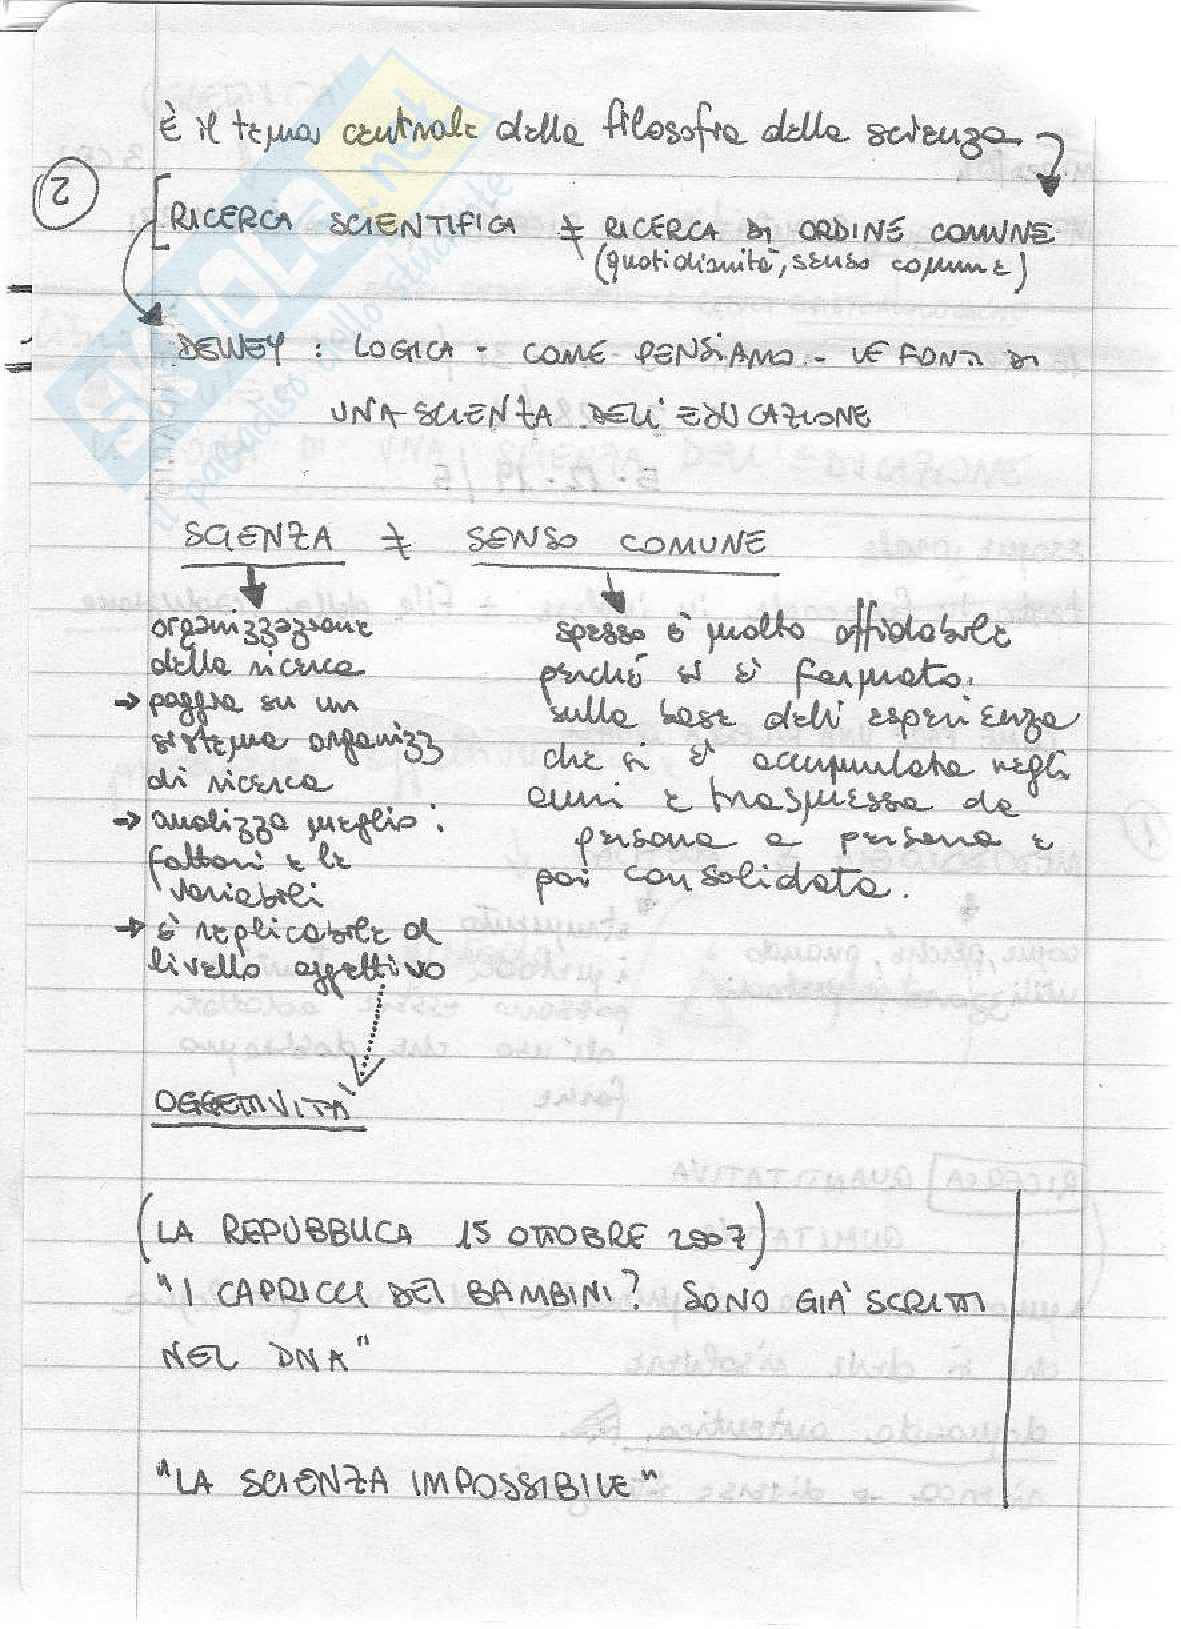 È il tema centrale della filosofia della scienza
2
RICERCA SCIENTIFICA ≠ RICERCA DI ORDINE COMUNE
(quotidianità, senso comune)
DEWEY : LOGICA - COME PENSIAMO - LE FONTI DI
UNA SCIENZA DELL'EDUCAZIONE
SCIENZA ≠ SENSO COMUNE
organizzazione
della ricerca
→ poggia su un
sistema organizz
di ricerca
→ analizza meglio i
fattori e le
variabili
→ è replicabile a
livello oggettivo
spesso è molto affidabile
perché si è formato
sulla base dell'esperienza
che si è accumulata negli
anni e trasmessa da
persona a persona e
poi consolidata.
OGGETTIVITÀ
(LA REPUBBLICA 15 OTTOBRE 2007)
"I CAPRICCI DEI BAMBINI? SONO GIÀ SCRITTI
NEL DNA"
"LA SCIENZA IMPOSSIBILE"
SKUOLA.net
il paradiso dello studente